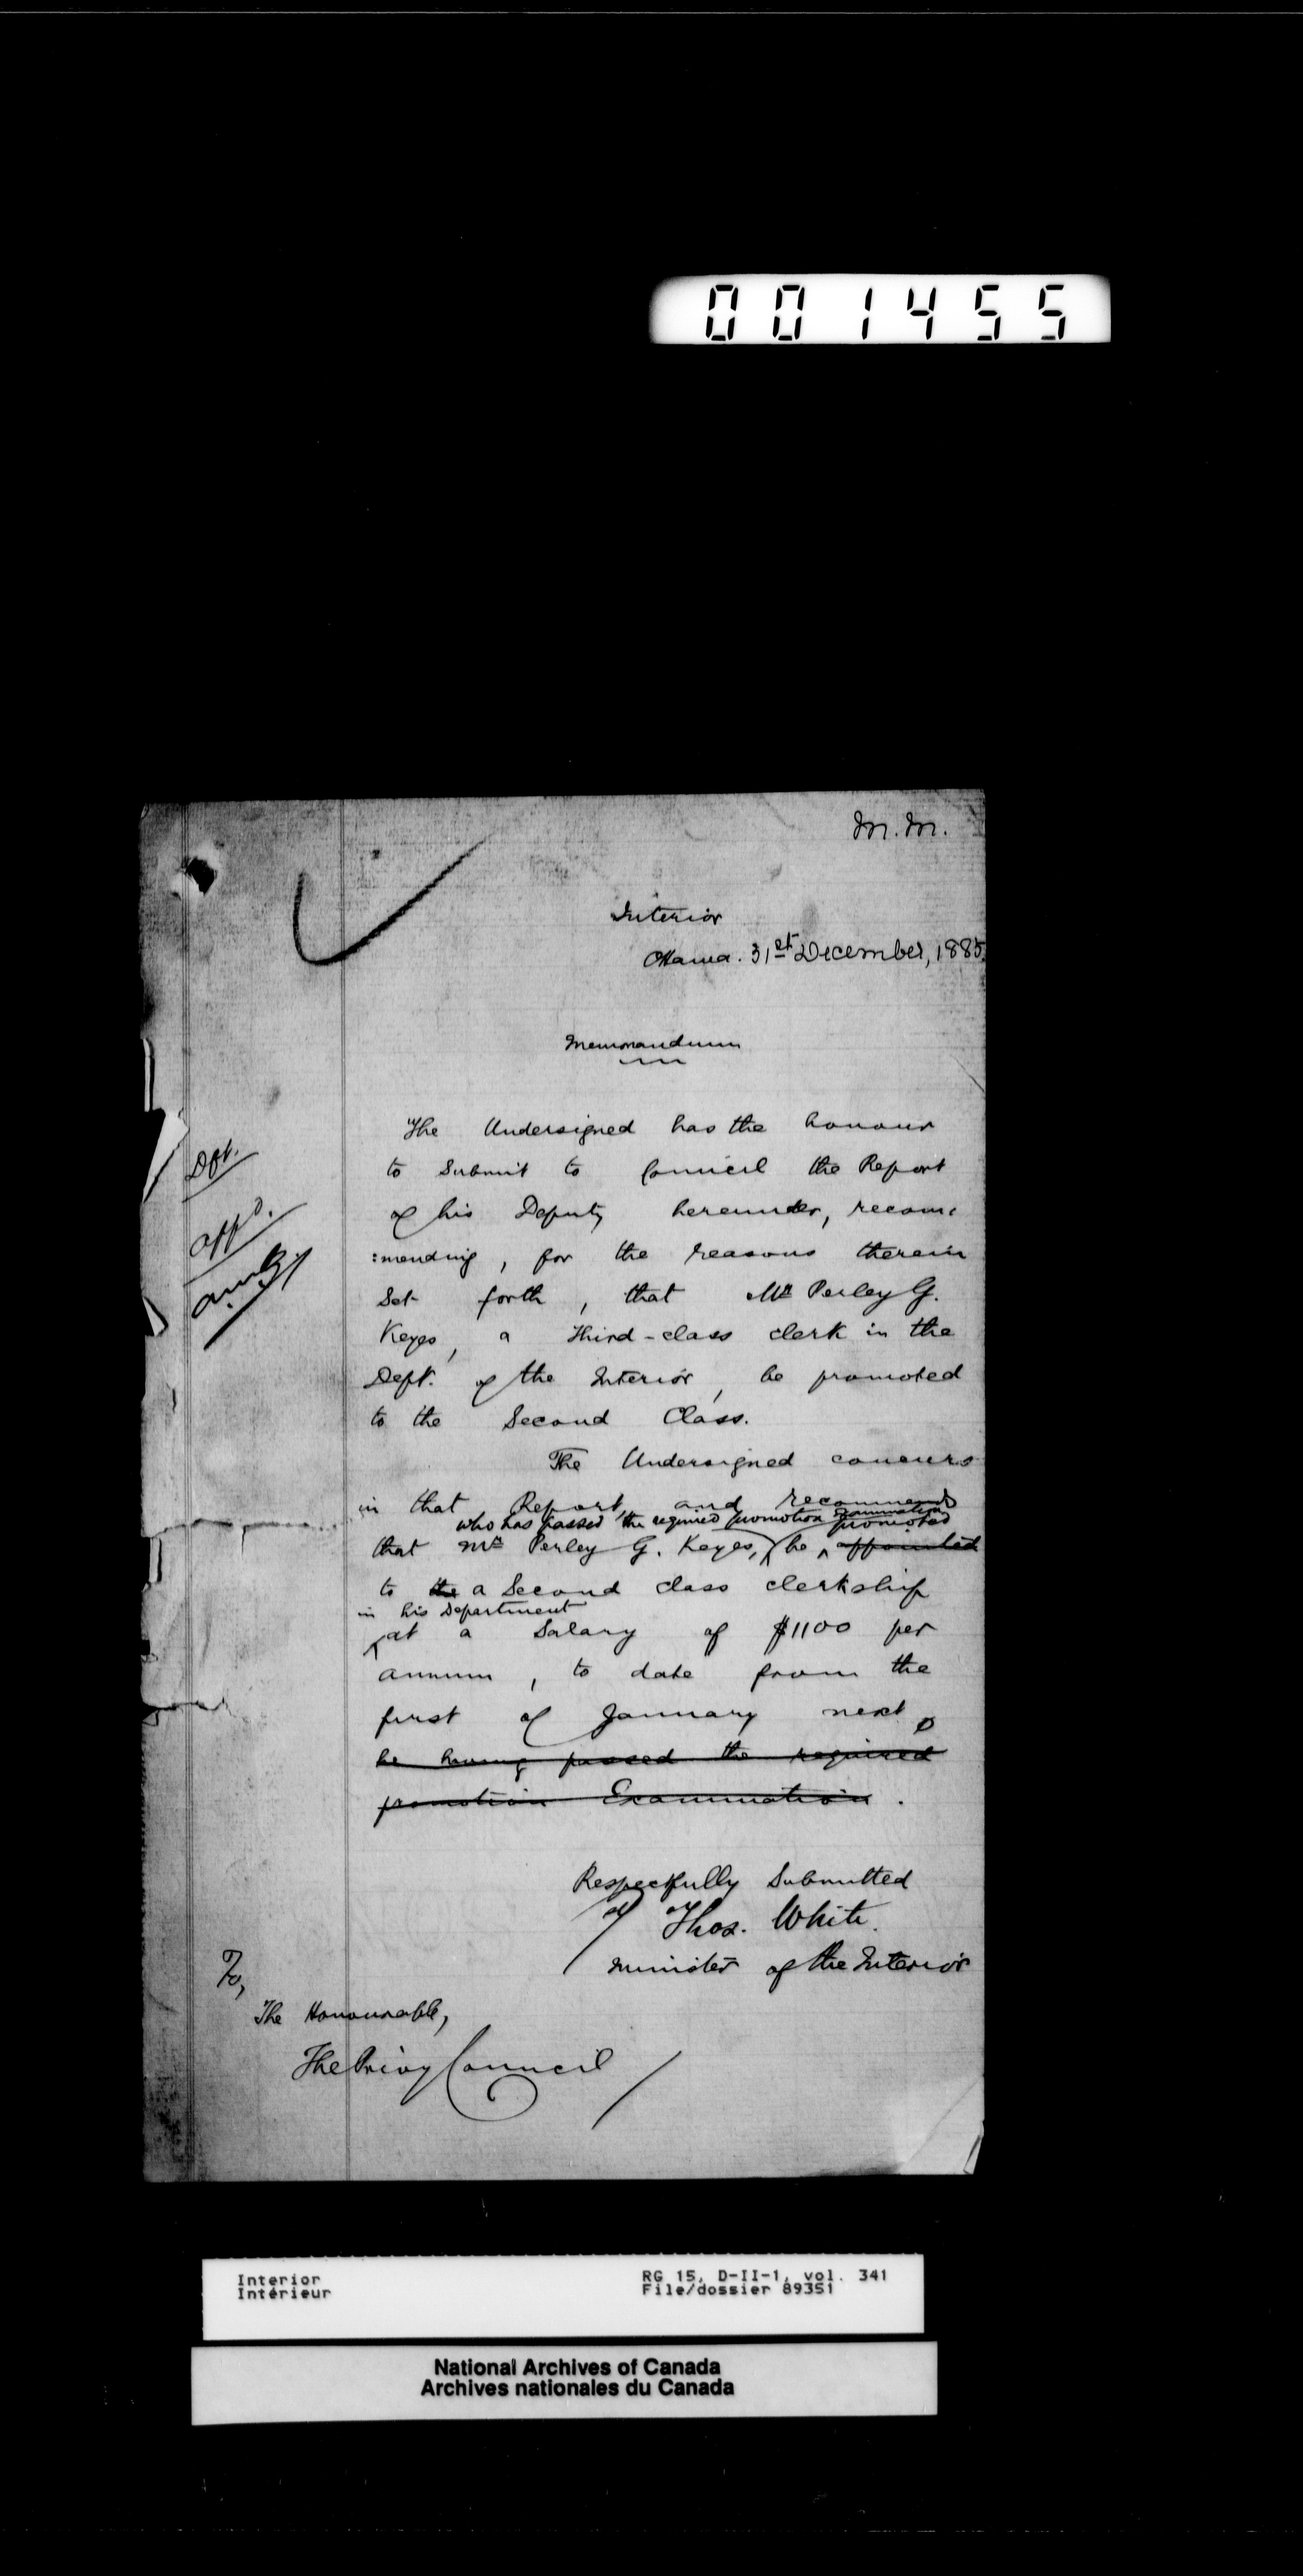 001455
M.M.
Interior
Ottawa. 31st December, 1885.
Memorandum
The Undersigned has the honour
to submit to Council the Report
of his Deputy hereunder, recom-
:mending, for the reasons therein
set forth, that Mr Perley G.
Keyes, a third-class clerk in the
Dept. of the Interior, be promoted
to the Second Class.
The Undersigned concurs
in that Report, and recommends
who has passed the required promotion examination promoted
that Mr Perley G. Keyes, be appointed
to the a Second class clerkship
in his Department
at a salary of $1100 per
annum, to date from the
first of January next
he having passed the required
promotion Examination.
Respectfully Submitted
Thos. White.
Minister of the Interior
To,
The Honourable,
The Privy Council
Dpt.
appd.
Interior
Intérieur
RG 15, D-II-1, vol. 341
File/dossier 89351
National Archives of Canada
Archives nationales du Canada